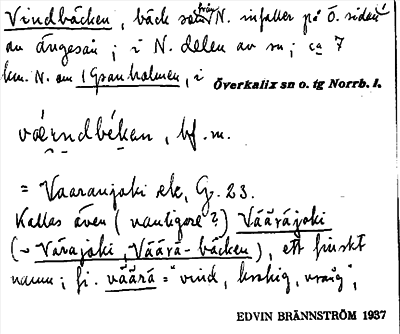 Vindbäcken, bäck som från N. infaller på Ö. sidan
av ängesån; i N. delen av sn; ca 7
km. N. om (Gran)holmen, i Överkalix sn o. tg Norrb. l.
vǽrndbékan, bf. m.
= Vaaranjoki ek, G. 23.
Kallas även (vanligare?) Vääräjoki
(~ Värajoki, Väärä-bäcken), ett finskt
namn; fi. väärä = "vind, krokig, vrång",
EDVIN BRÄNNSTRÖM 1937